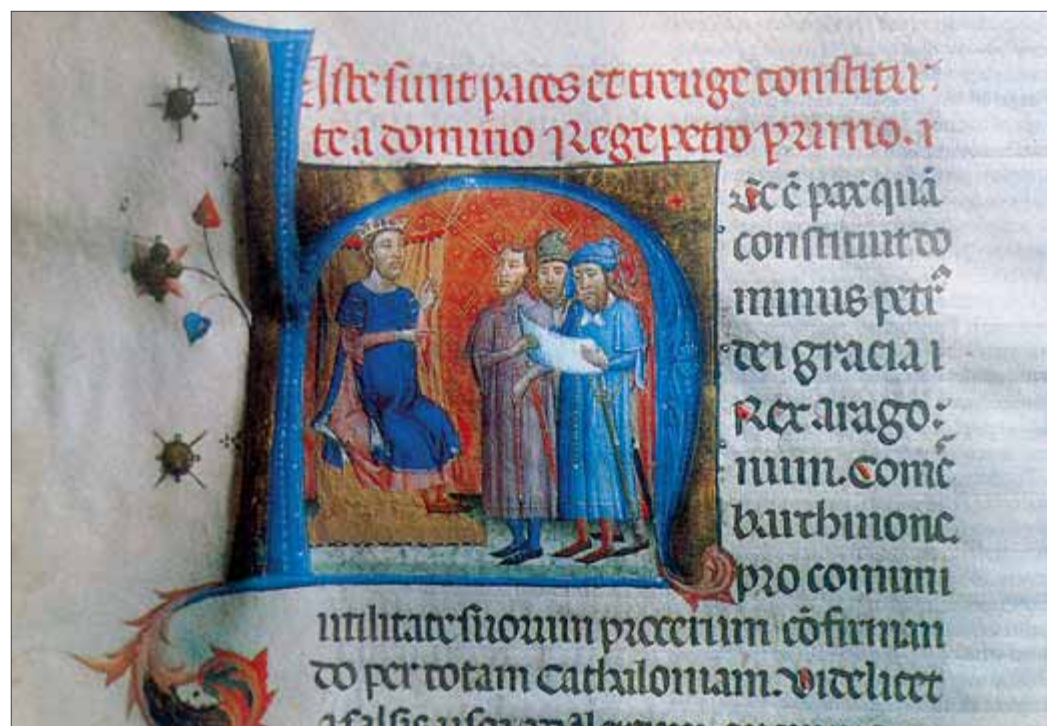 Iste sunt paces et treuge constitu-
te a domino Rege petro primo. i
H
ec ē pax quā
constituit do
minus petr
dei gracia i
Rex arago:
num. Comē
barchinonē
pro comuni
utilitate suorum procerum cōfirman
do per totam Cathaloniam. videlicet
a